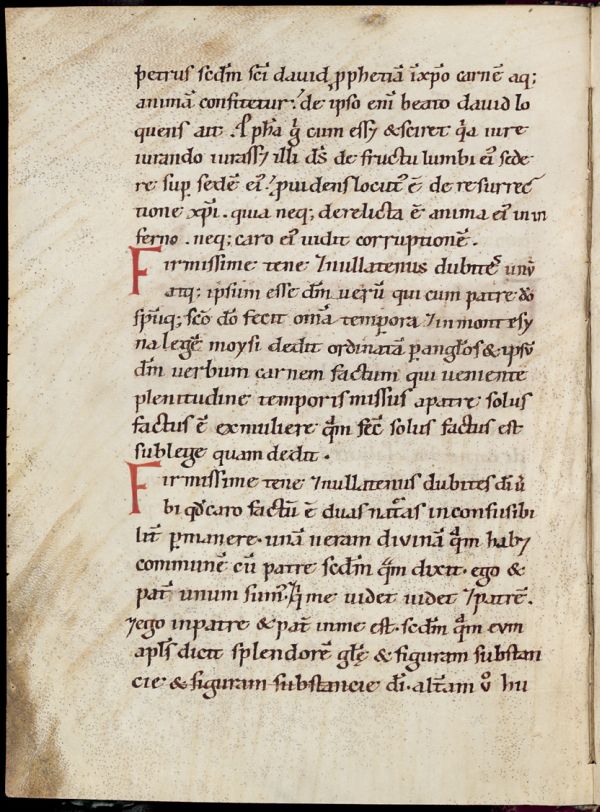 petrus scdm̄ sc̄i dauid p̱phetiā ĩxp̄o carnē aq;
animā confitetur. de ipso eni᷒ beato dauid lo
quens ait. P̱pha gͥ cum ess& &sciret qͥa iure
iurando iurass& illi ds̄ de fructu lumbi ei᷒ sede
re sup̱ sedē ei᷒. p̱uidens locut᷒ ē de resurrec
tione xp̄i. quia neq; derelicta ē anima ei᷒ in in
ferno. neq; caro ei᷒ uidit corruptionē.
Firmissime tene ⁊nullatenus dubites unū
atq; ipsum esse dm̄ uerū qui cum patre &
spūq; sc̄o dō fecit om̄a tempora ⁊in monte sy
na legē moysi dedit ordinatā p̱ angl̄os & ipsū
dm̄ uerbum carnem factum qui ueniente
plenitudine temporis missus apatre solus
factus ē exmuliere qm̄ fec̄ solus factus est
sublege quam dedit.
Firmissime tene ⁊nullatenus dubites di᷒ ū
bi qd̄ caro factū ē duas nat̄as inconfusibi
lit̄ p̱manere. unā ueram diuinā qͣm hab&
communē cū patre scdm̄ qͣm dixit. ego &
pat̄ unum sum᷒. ⁊qͥ me uidet uidet ⁊patrē.
⁊ego inpatre & pat̄ inme est. scdm̄ qͣm eum
apl̄s dicit splendorē glę & figuram substan
cie & figuram substancie di᷒. alt̄am ū hu